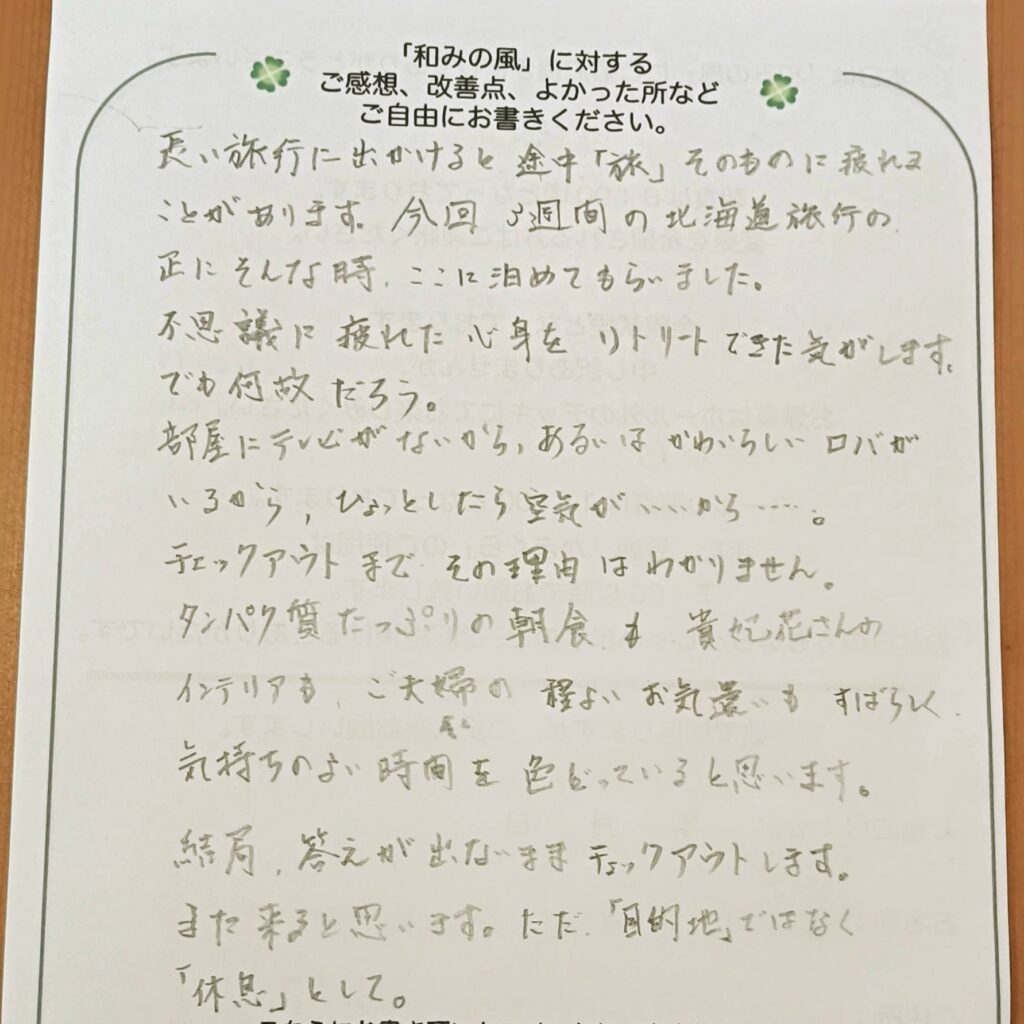 「和みの風」に対する
ご感想、改善点、よかった所など
ご自由にお書きください。
長い旅行に出かけると途中「旅」そのものに疲れる
ことがあります。今回 3週間の北海道旅行の
正にそんな時、ここに泊めてもらいました。
不思議に疲れた心身をリトリートできた気がします。
でも何故だろう。
部屋にテレビがないから、あるいはかわいらしいロバが
いるから、ひょっとしたら空気がいいから……。
チェックアウトまでその理由はわかりません。
タンパク質たっぷりの朝食も 貴妃花さんの
インテリアも、ご夫婦の程よいお気遣いもすばらしく
気持ちのよい時間を色どっていると思います。
結局、答えが出ないままチェックアウトします。
また来ると思います。ただ、「目的地」ではなく
「休息」として。